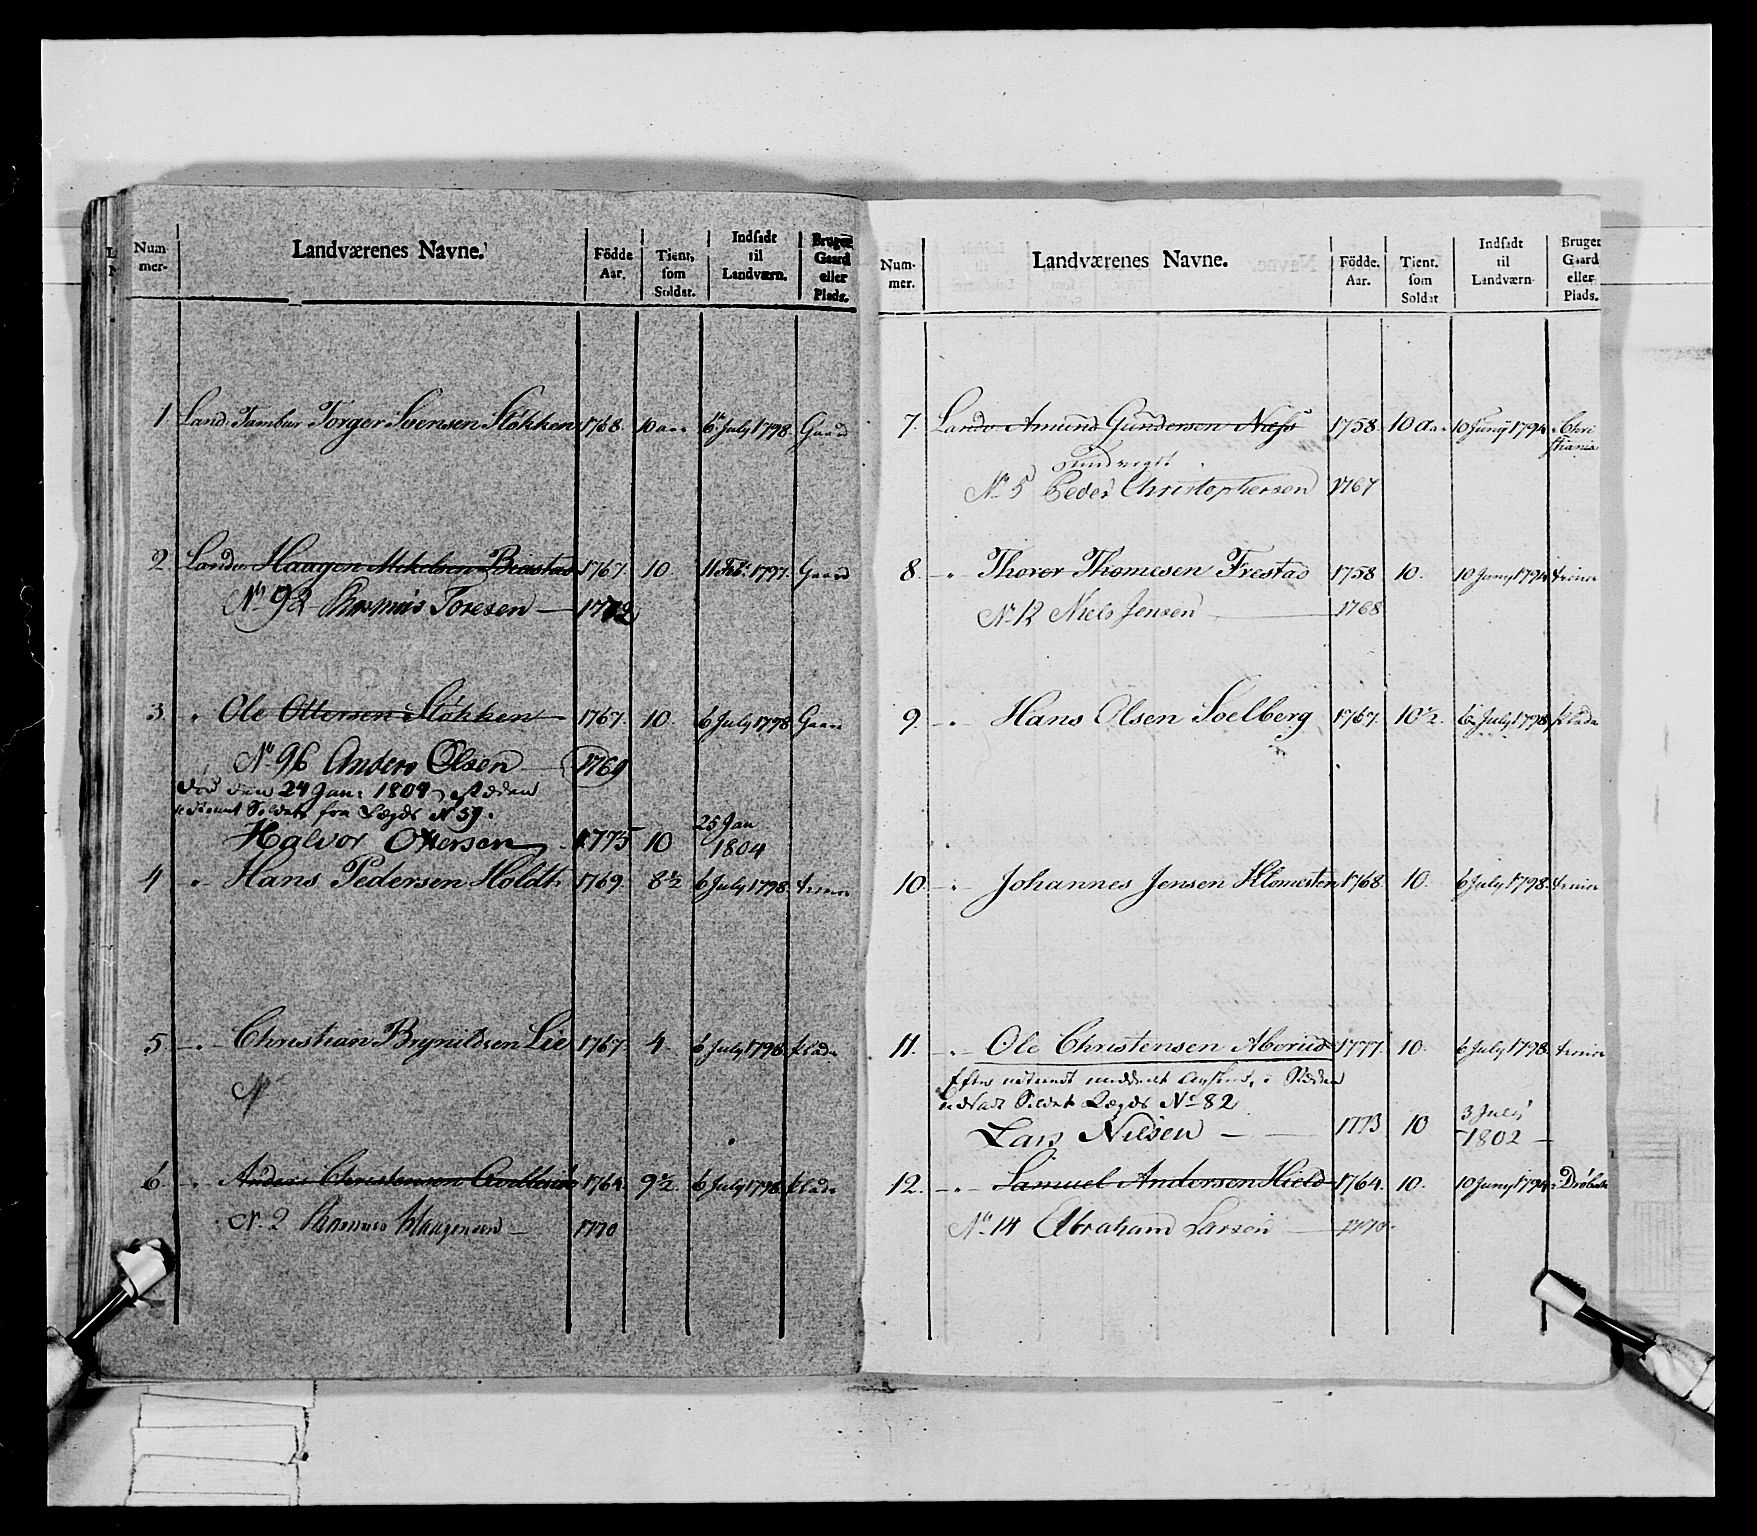 Num-
mer-
Landværenes Navne.
Födde
Aar.
Tient,
som
Soldat.
Indsadt
til
Landværn.
Bruger
Gaard
eller
Plads.
1 Land: Tambur Torger Svensen Stökken 1768. 10 aar 6 July 1798. Gaard
2. Landv: Haagen Mikelsen 1767. 10 11 Feb: 1797. Gaard
No 92 Rasmus Toresen — 1772
3. -"- Ole Ottersen Stökken 1767. 10. 6 July 1798 Gaard
No 96 Anders Olsen — 1769
död den 24 Jan: 1804, i Stæden
Soldat fra Lægds No 59.
Halvor Ottersen 1775 10 25 Jan 1804
4 -"- Hans Pedersen Holdt 1769. 8½ 6 July 1798.
5. -"- Christian Brynildsen Lie 1767. 4. 6 July 1798. plads
No
6. -"- Anders Christensen 1764. 9½ 6 July 1798 plads
No 2 Rasmus Haagensen — 1770
Num-
mer.
Landværenes Navne.
Födde.
Aar.
Tient.
som
Soldat
Indsadt
til
Landværn-
Bruger
Gaard
eller
Plads.
7. Landv Amund Gundersen Næss 1758. 10 a. 10 Juny 1794. Christiania
No 5 Peder Christophersen 1767
8. -"- Thorer Thomesen Frestad 1758 10. 10 Juny 1794
No 12 Niels Jensen — 1768
9. -"- Hans Olsen Soelberg 1767. 10½ 6 July 1798. plads
10. -"- Johannes Jensen Klomesten 1768. 10. 6 July 1798.
11. -"- Ole Christensen Aberud 1777. 10. 6 July 1798.
Efter i Stæden
udsadt Soldat Lægds No 82
Lars Nilsen — 1773 10 3 July 1802 —
12. -"- Samuel Andersen Hield 1764. 10. 10 Juny 1794. Dröbak
No 14 Abraham Larsen — 1770.